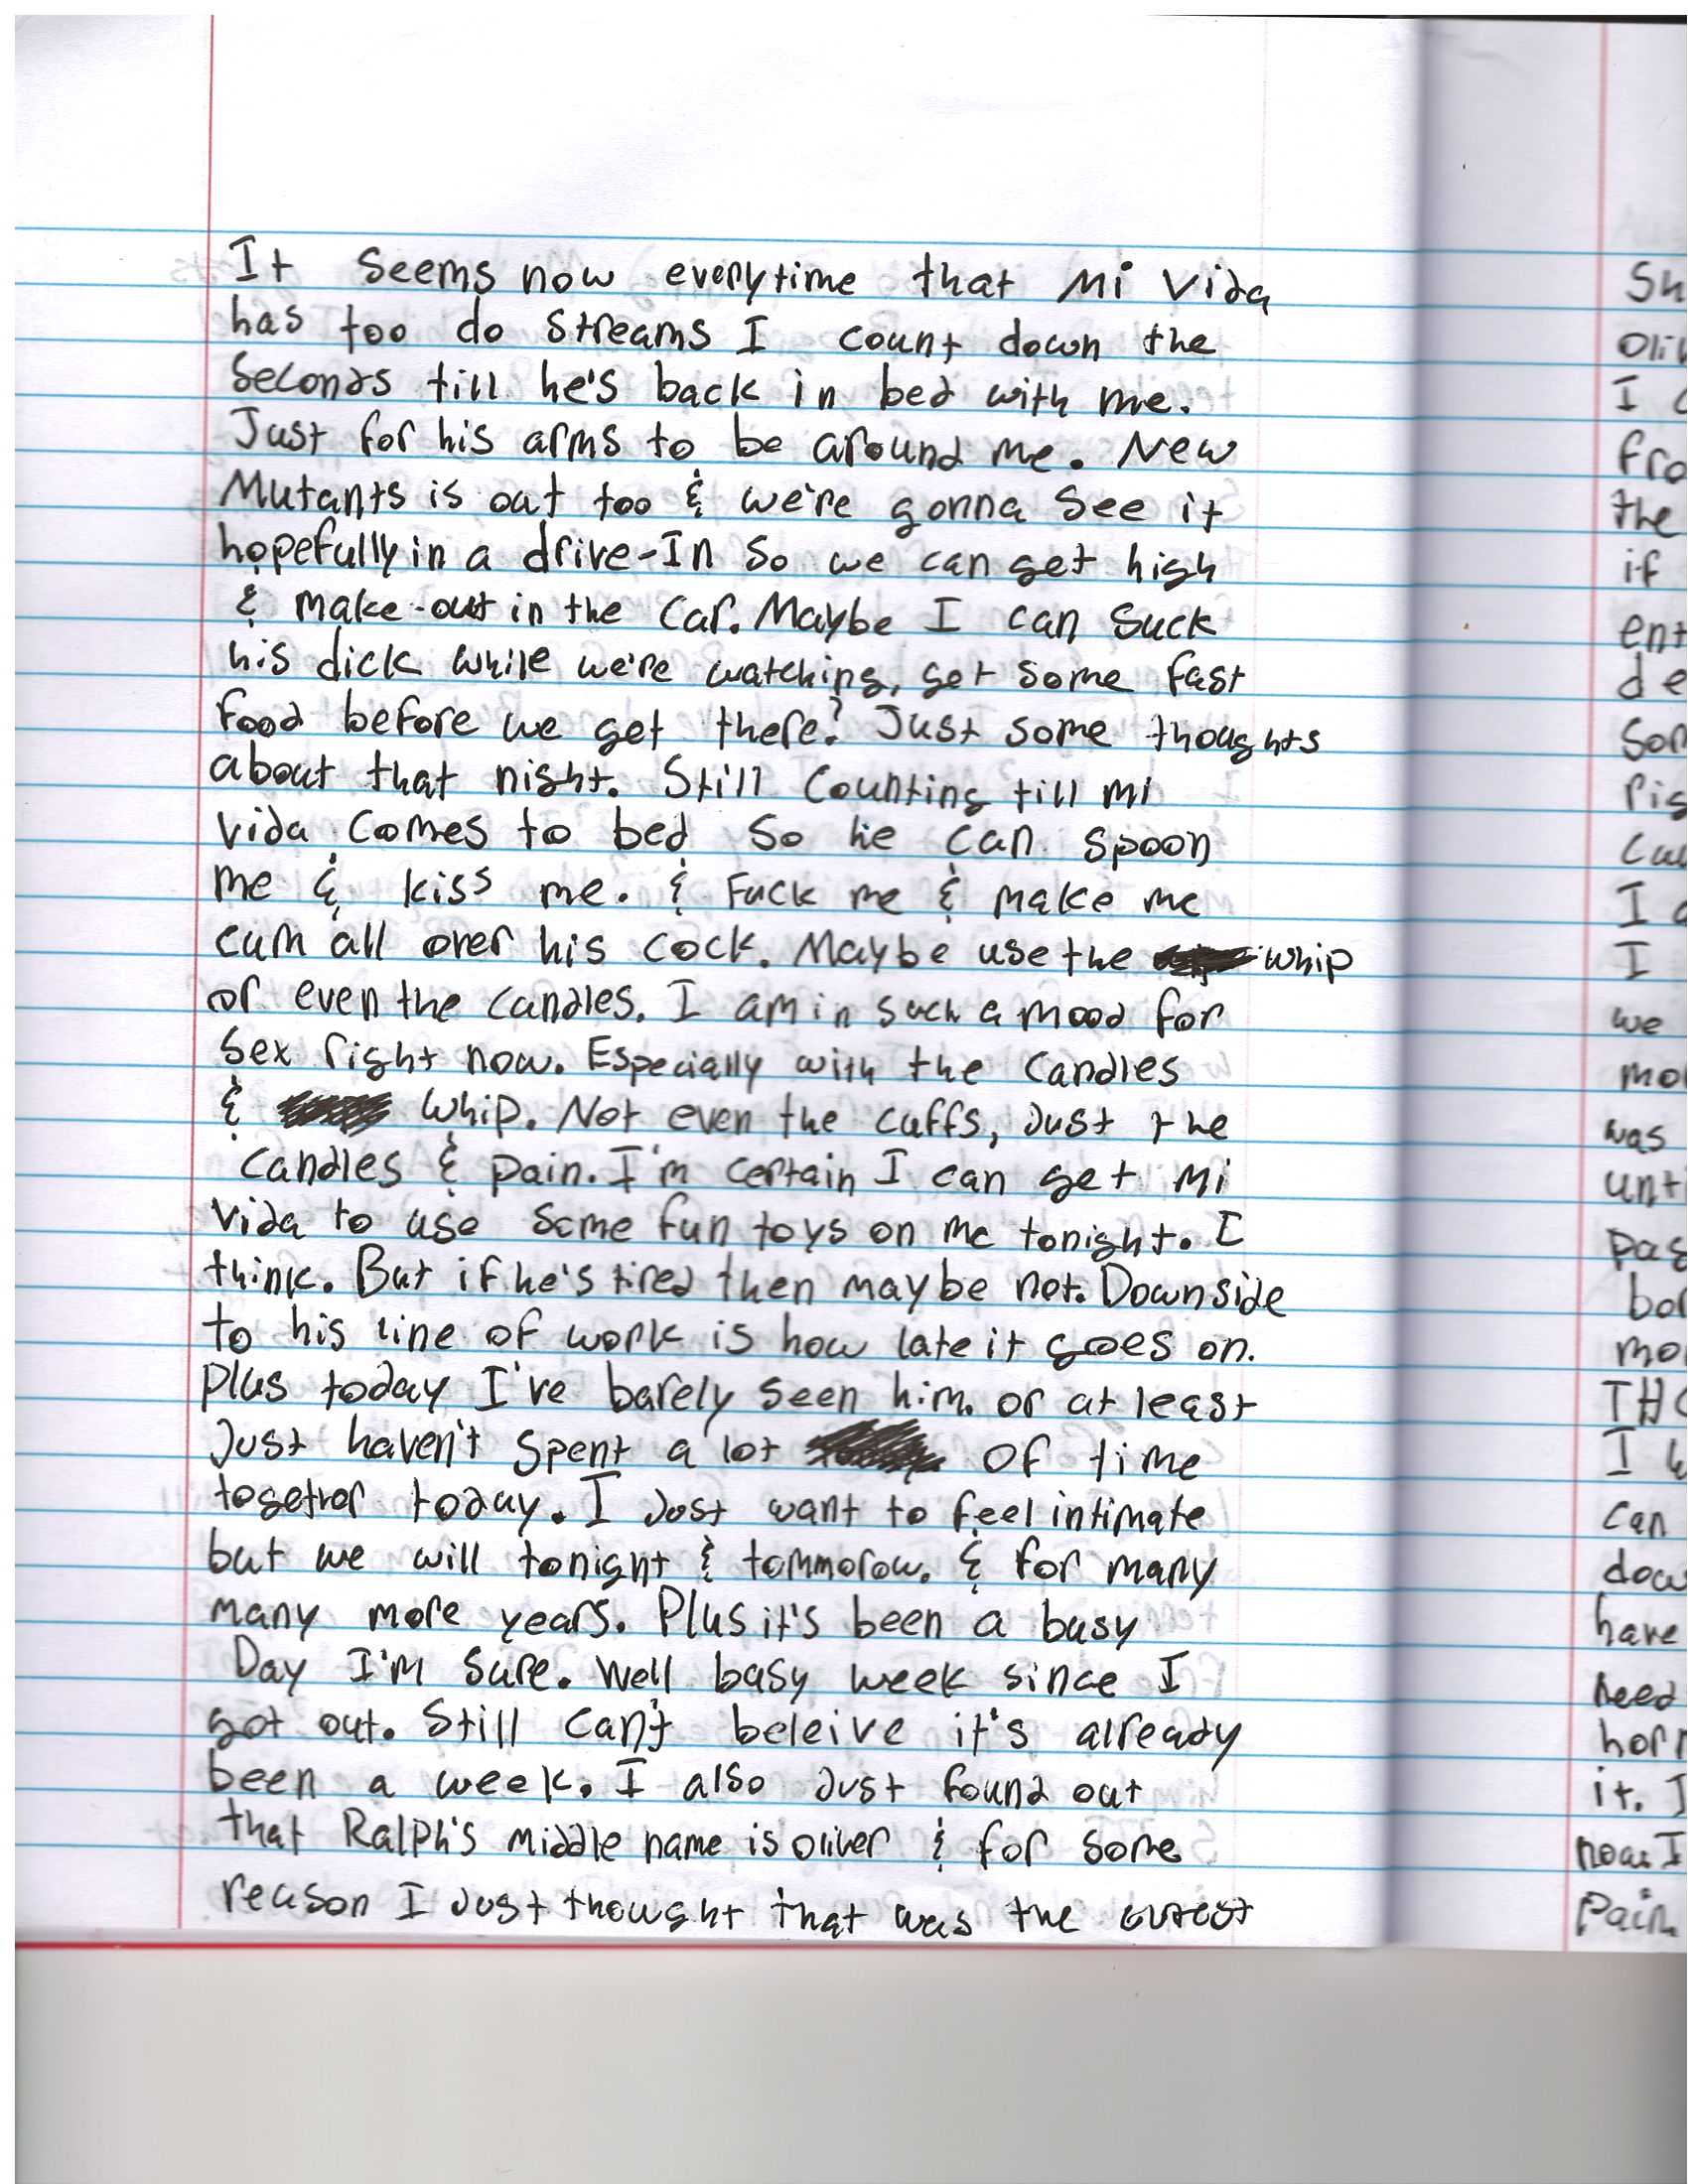 It seems now everytime that Mi Vida
has too do streams I count down the
seconds till he's back in bed with me.
Just for his arms to be around me. New
Mutants is out too & we're gonna see it
hopefully in a drive-In so we can get high
& make-out in the car. Maybe I can suck
his dick while we're watching, get some fast
food before we get there? Just some thoughts
about that night. Still counting till mi
vida comes to bed so he can spoon
me & kiss me. & Fuck me & make me
cum all over his cock. Maybe use the whip
or even the candles. I am in such a mood for
sex right now. Especially with the candles
& whip. Not even the cuffs, Just the
candles & pain. I'm certain I can get Mi
Vida to use some fun toys on me tonight. I
think. But if he's tired then maybe not. Downside
to his line of work is how late it goes on.
Plus today I've barely seen him. or at least
Just haven't spent a lot of time
together today. I Just want to feel intimate
but we will tonight & tommorow. & for many
many more years. Plus it's been a busy
Day I'm sure. Well busy week since I
got out. Still can't beleive it's already
been a week. I also Just found out
that Ralph's middle name is oliver & for some
reason I Just thought that was the cutest
Sh
I
the
if
de
I
I
we
was
THC
I
can
have
need
it. I
now I
pain